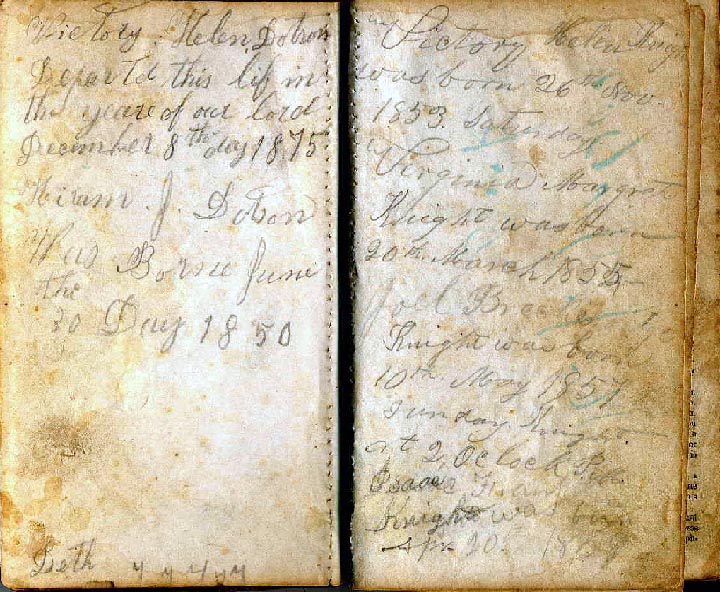 Victory. Helen Dobson
Departd this lif in
the yeare of our lord
December 8th day 1875
Hiram. J. Dobson
Was Borne June
the
20 Day 1850
Seth
Victory Hellen Knigh
was born 26th Nov.
1853. Saturday
Virginia Margret
Knight was born
20th March 1855
Joel
Knight was born
10th. May 1857
Sunday Knight
at 2, Oclock P.M.
Isaac
Knight was born
Apr 20. 18